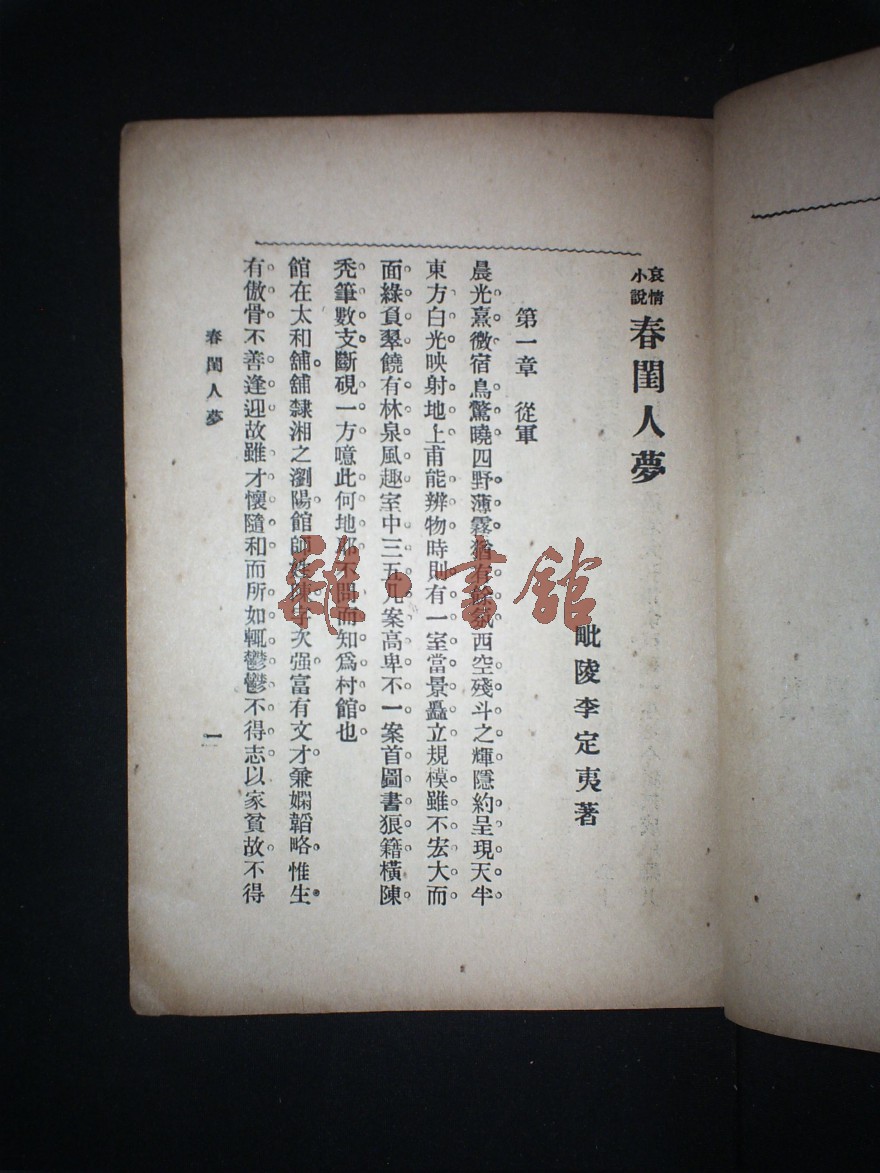 哀情小說 春閨人夢
毗陵李定夷著
第一章 從軍
晨光熹微宿鳥驚曉四野薄霧猶有西空殘斗之輝隱約呈現天半
東方白光映射地上甫能辨物時則有一室當景矗立規模雖不宏大而
面綠負翠饒有林泉風趣室中三五几案高卑不一案首圖書狼籍橫陳
禿筆數支斷硯一方噫此何地耶不問而知爲村館也
館在太和舖舖隸湘之瀏陽館師姓陳字次强富有文才兼嫻韜略惟生
有傲骨不善逢迎故雖才懷隨和而所如輒鬱鬱不得志以家貧故不得
春閨人夢
一
雜·書館